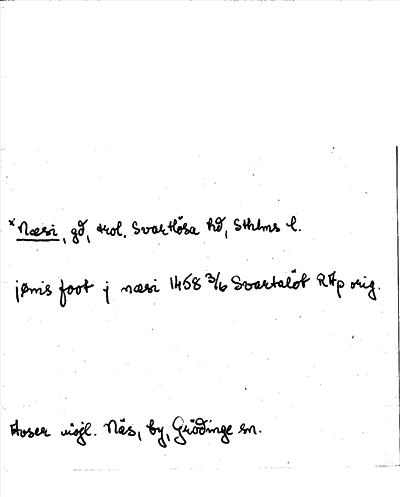 *Næsi, gd, trol. Svartlösa hd, Sthlms l.
jønis foot j næsi 1458 3/6 Svartalöt RAp orig.
Avser möjl. Näs, by, Grödinge sn.